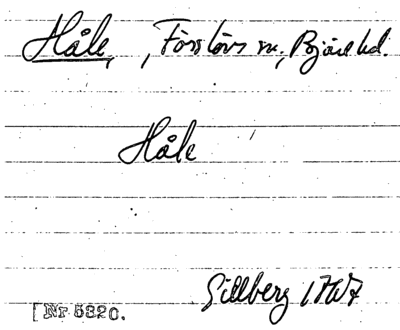 Håle, , Förslövs sn., Bjäre hd.
Håle
Gillberg 1767
[Nr 5320.